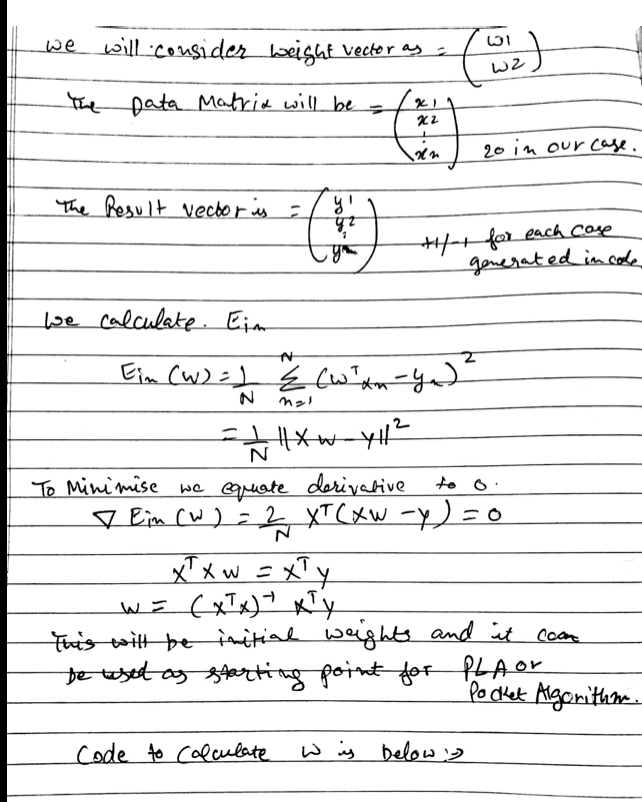 we will consider weight vector as = (w1 w2)
The Data Matrix will be = (x1 x2 ⋮ xn) 20 in our case.
The Result vector is = (y1 y2 ⋮ yn) +1/-1 for each case
generated in code
we calculate. Ein
Ein (w) = 1/N Σ_{n=1}^{N} (w^T xn - yn)^2
= 1/N ||Xw - y||^2
To Minimise we equate derivative to 0.
∇ Ein (w) = 2/N X^T (Xw - y) = 0
X^T X w = X^T y
w = (X^T X)^-1 X^T y
This will be initial weights and it can
be used as starting point for PLA or
Pocket Algorithm.
Code to calculate w is below :⇒